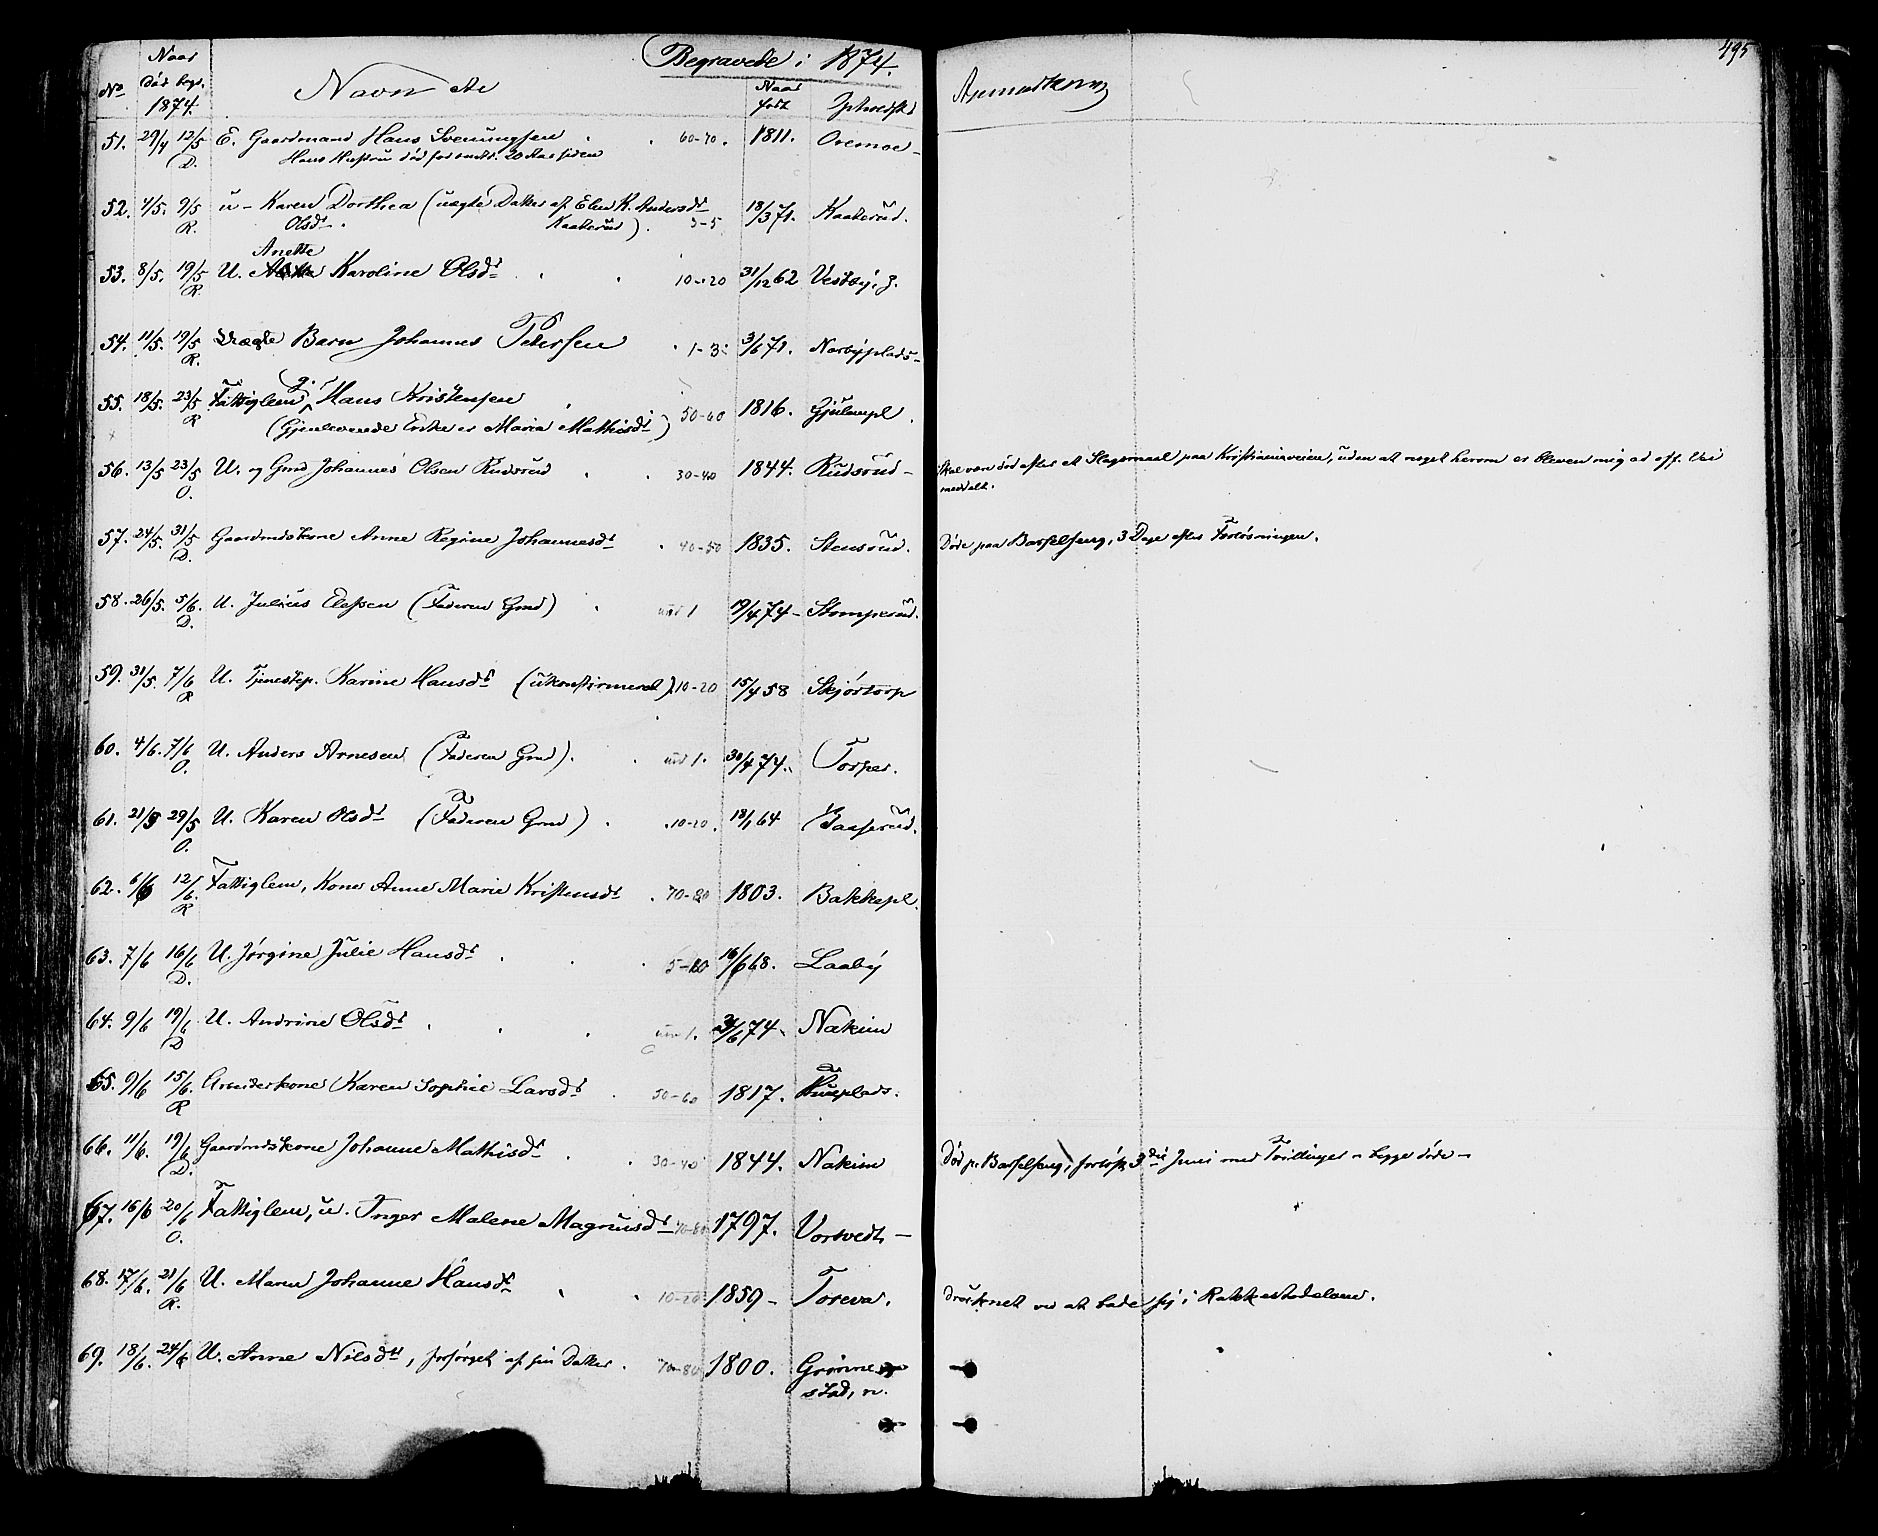 495
Begravede i 1874.
No Naar Død begr. 1874. Navn etc Naar født Opholdsst. Anmærkning
51. 29/4 12/5 E. Gaardmand Hans Svenningsen 60-70. 1811. Oremoe
D. Hans Hustru død for omtr. 20 Aar siden
52. 4/5. 9/5 u - Karen Dorthea (uægte Datter af Elen K. Andersdr 18/3 71. Kaaterud.
R. Olsdr. Kaaterud). 3-5
Anette
53. 8/5. 19/5 U. Karoline Olsdr 10-20 31/12 62 Vestby, g.
R.
54. 11/5. 19/5 Uægte Barn Johannes Petersen 1-3 3/6 71. Norbyplads
R.
55. 18/5. 23/5 Fattiglem, g. Hans Kristensen 50-60 1816. Gjulempl.
R (Gjenlevende Enke er Maria Mathisdr)
56. 13/5 23/5 U. og Gmd Johannes Olsen Rudsrud 30-40 1844. Rudsrud - Skal være død efter et Slagsmaal paa Kristianiaveien, uden at noget herom er bleven mig ad off. Vei
O. meddelt.
57. 24/5. 31/5 Gaardmdskone Anne Regine Johannesdr 40-50 1835. Stensrud. Døde paa Barselseng, 3 Dage efter Forløsningen.
D.
58. 26/5. 5/6. U. Julius (Faderen Gmd) und 1 19/4 74 - Stomperud.
D.
59. 31/5. 7/6 U. Tjenestep. Karine Hansdr (ukonfirmeret) 10-20 15/4 58 Skjørtorp
R
60. 4/6. 7/6 U. Anders Arnesen (Faderen Gmd). und 1. 30/4 74. Torper.
O.
61. 21/5 29/5 U. Karen Olsdr (Faderen Gmd) 10-20. 18/1 64
O.
62. 6/6 12/6. Fattiglem, Kone Anne Marie Kristensdr 70-80 1803. Bakkepl.
R
63. 7/6 16/6 U. Jørgine Julie Hansdr 5-10 16/6 68. Laaby
D.
64. 9/6 19/6 U. Andrine Olsdr und 1. 74. Nakim
D
65. 9/6 15/6. Arbeiderkone Karen Sophie Larsdr 50-60 1817.
R
66. 11/6. 19/6 Gaardmdskone Johanne Mathisdr 30-40 1844. Nakim Død p. Barselseng, forløst 3die Juni med Tvillinger - begge døde -
D.
67. 16/6 20/6 Fattiglem, u. Inger Malene Magnusdr 70-80 1797. Vorsvedt -
O.
68. 17/6. 21/6 U. Maren Johanne Hansdr 10-20 1859 - Toreva. Druknet ved at bade sig i Rakkestadelven.
R.
69. 18/6. 24/6 U. Anne Nilsdtr, forsørget af sin Datter. 70-80 1800. Grønne-
stad, n.